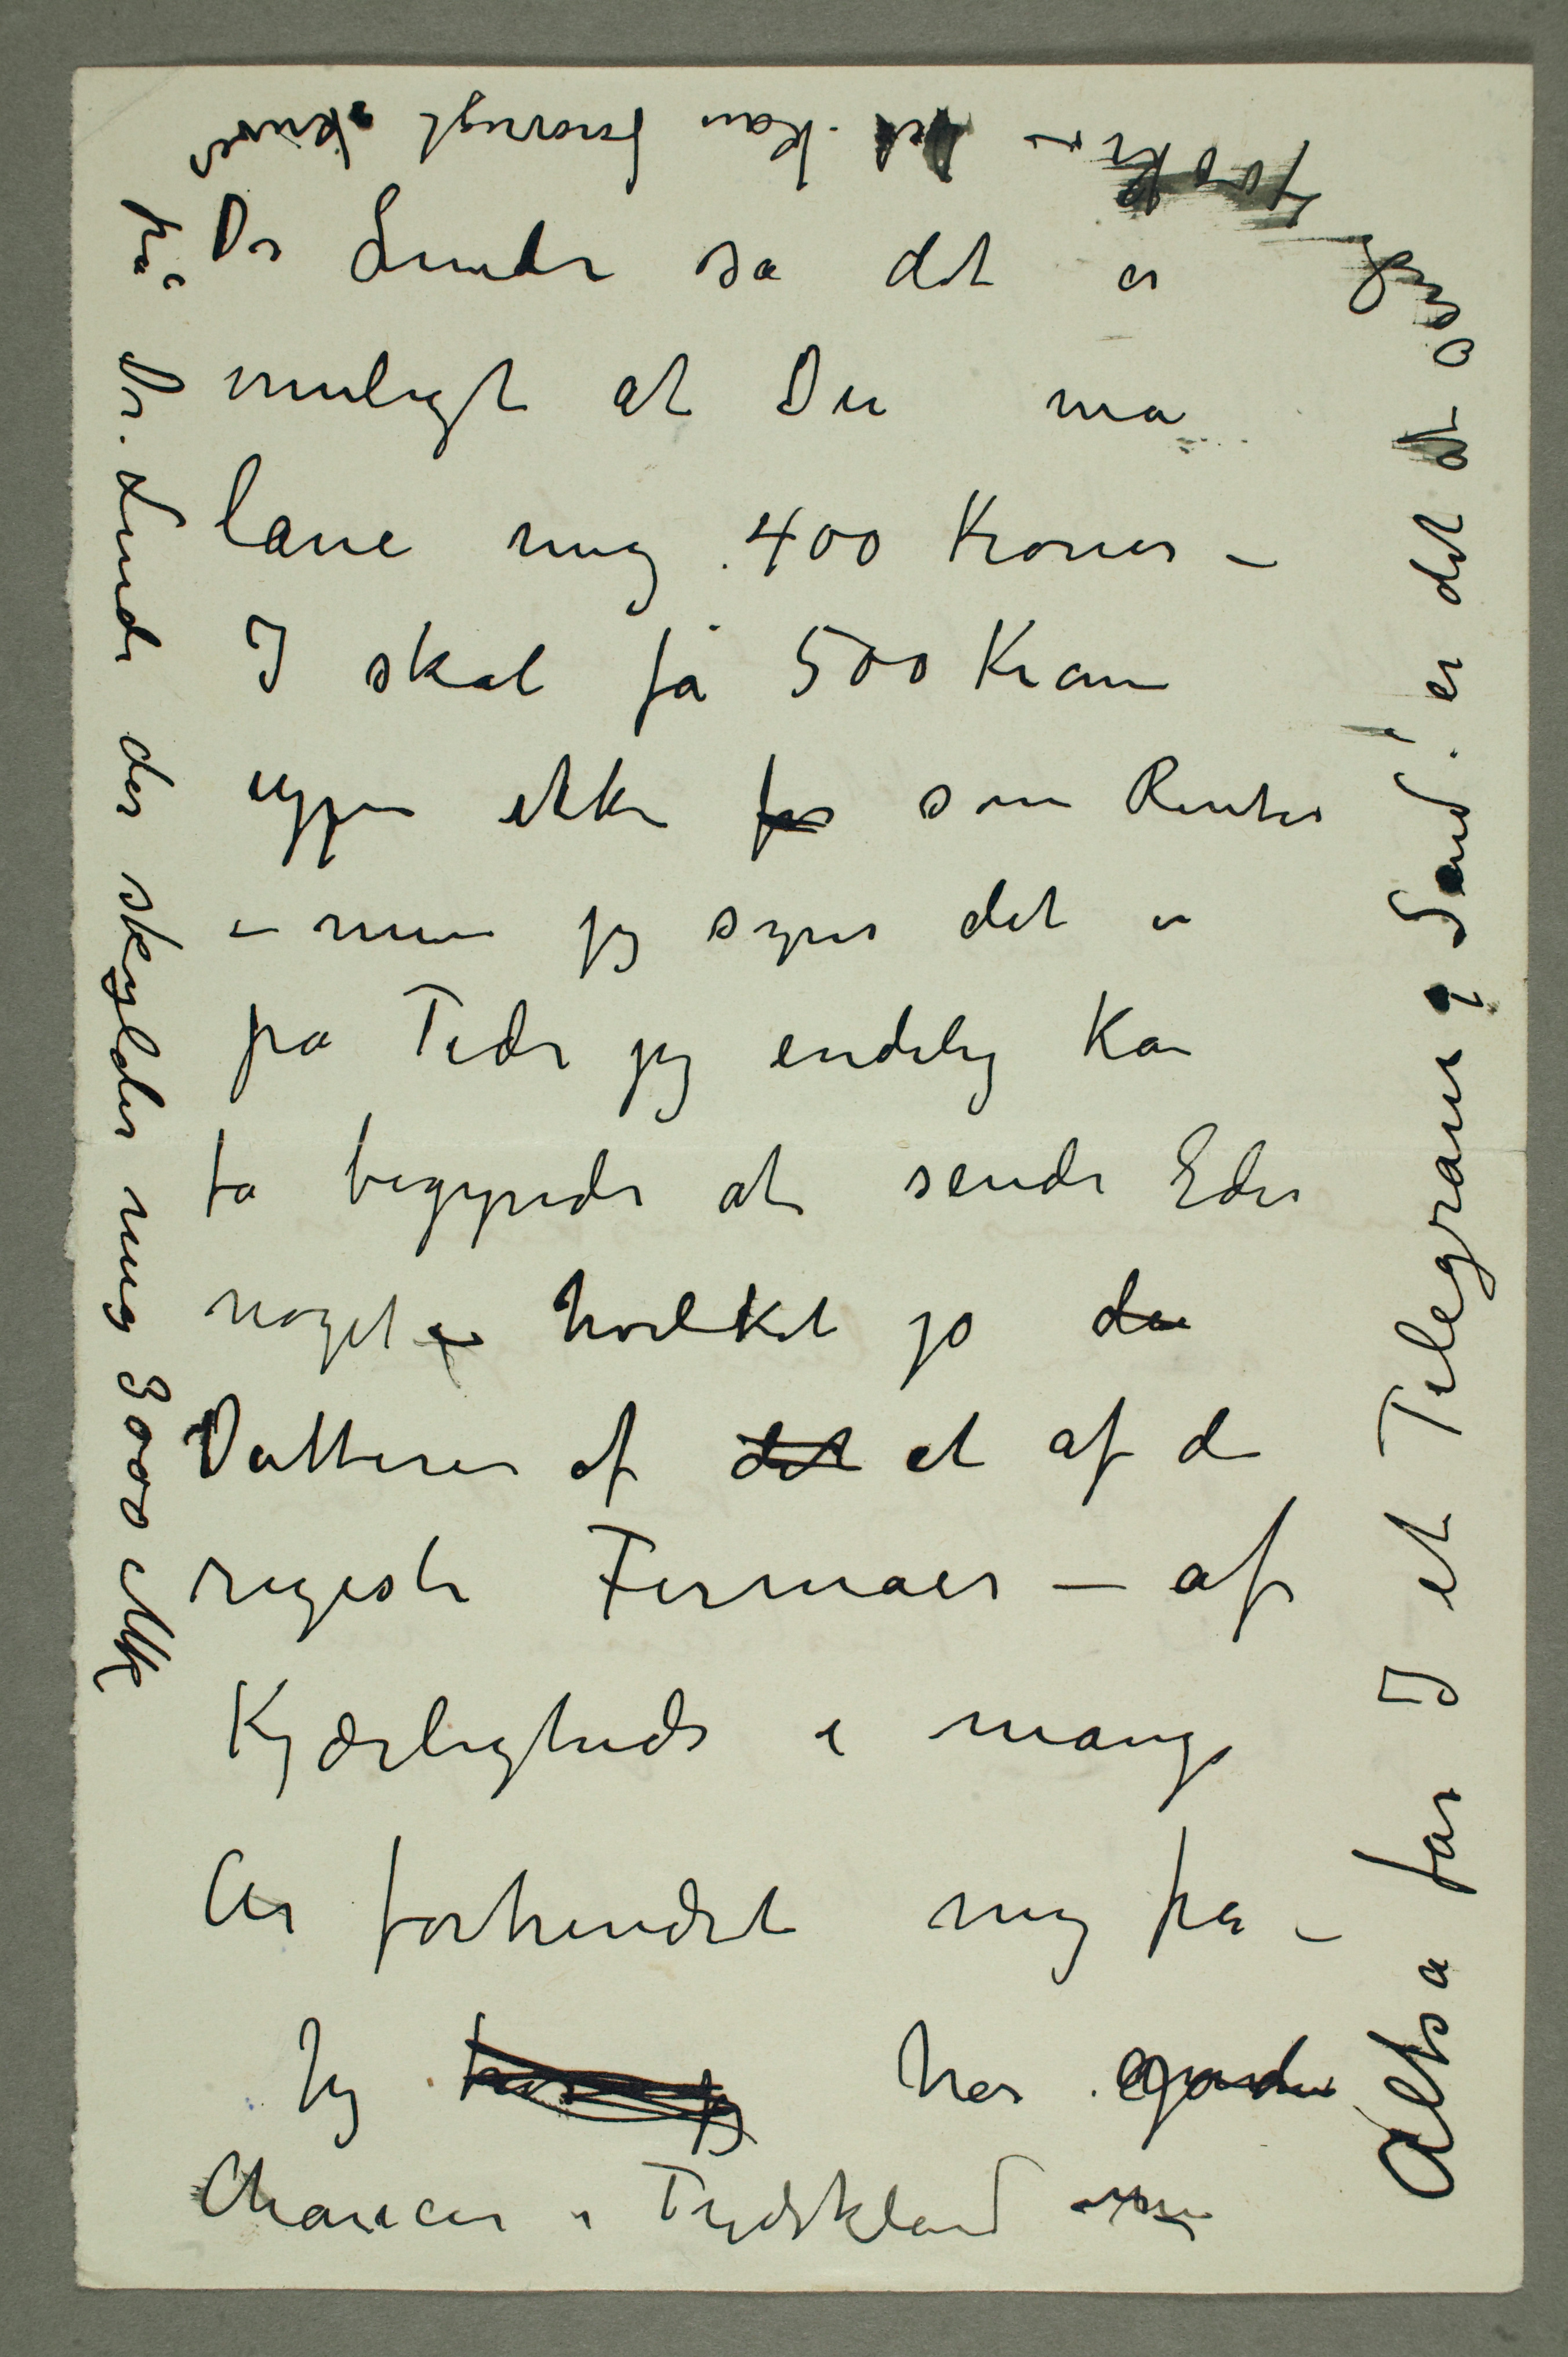 Dr Linde så det er
muligt at Du må
låne mig 400 Kroner –
I skal få 500 Kroner
igjen ikke for som Renter
– men jeg synes det er
på Tide jeg endelig kan
få begynde at sende Eder
noget – hvilket jo den
Datteren af det et af de
rigeste Firmaer – af
Kjærligheds i mange
År forhindret mig fra –
Jeg tror jeg har gode
Chancer i Tydskland
Altså får I et Telegram: Send! er det at
400 Kr – Det kan forøvrigt skrives
på Dr. Linde der skylder mig 3000 Mk